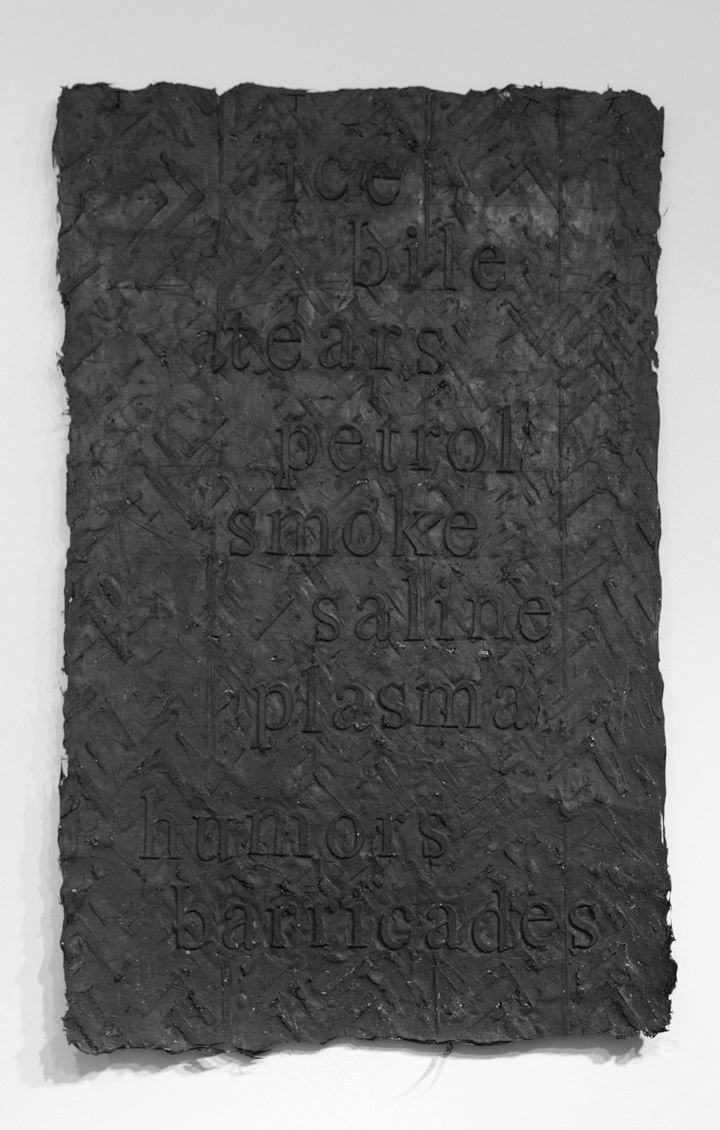 ice
bile
tears
petrol
smoke
saline
plasma
humors
barricades